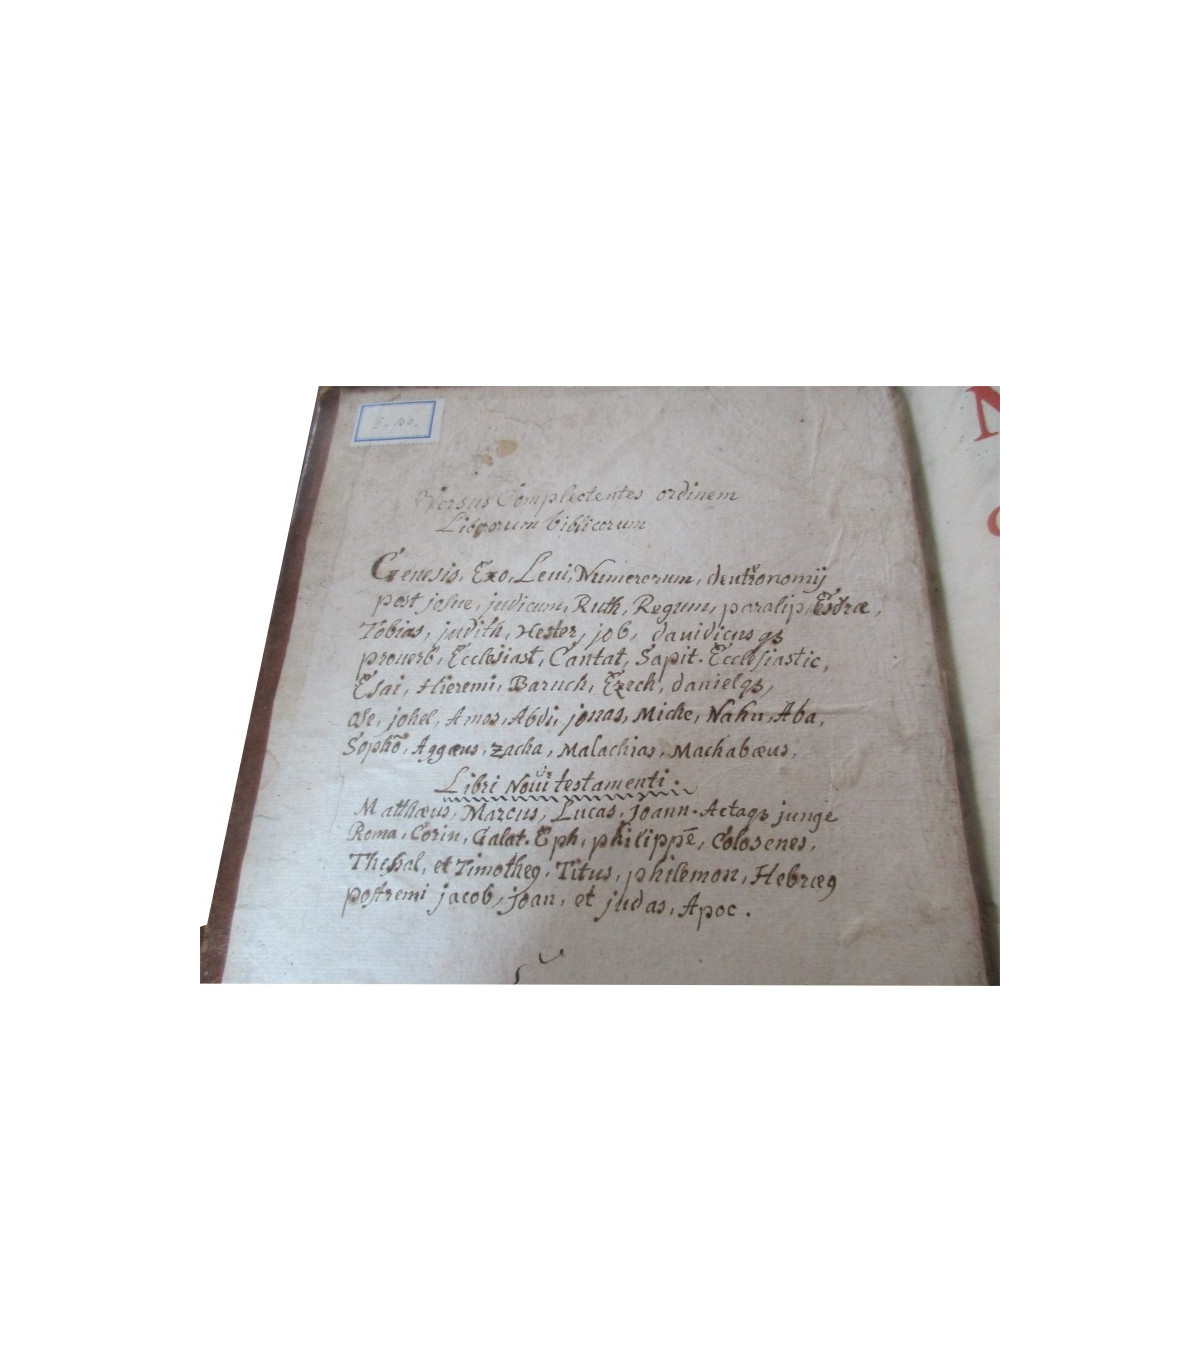 Versus Complectentes ordinem
Librorum biblicorum
Genesis, Exo, Leui, Numerorum, deutronomij
post josue, judicum, Ruth, Regum, paralip, Esdræ,
Tobias, judith, Hester, job, dauidicusqꝫ
prouerb, Ecclesiast, Cantat, Sapit. Ecclesiastic,
Esai, Hieremi, Baruch, Ezech, danielqꝫ,
ose, johel, Amos, Abdi, jonas, Miche, Nahu, Aba,
Sophõ, Aggæus, zacha, Malachias, Machabæus,
Libri Noui testamenti.
Matthæus, Marcus, Lucas, joann. Actaqꝫ junge
Roma, Corin, Galat. Eph, philippẽ, Colosenes,
Thessal, et Timotheꝯ. Titus, philemon, Hebræꝯ
postremi jacob, joan, et judas, Apoc.